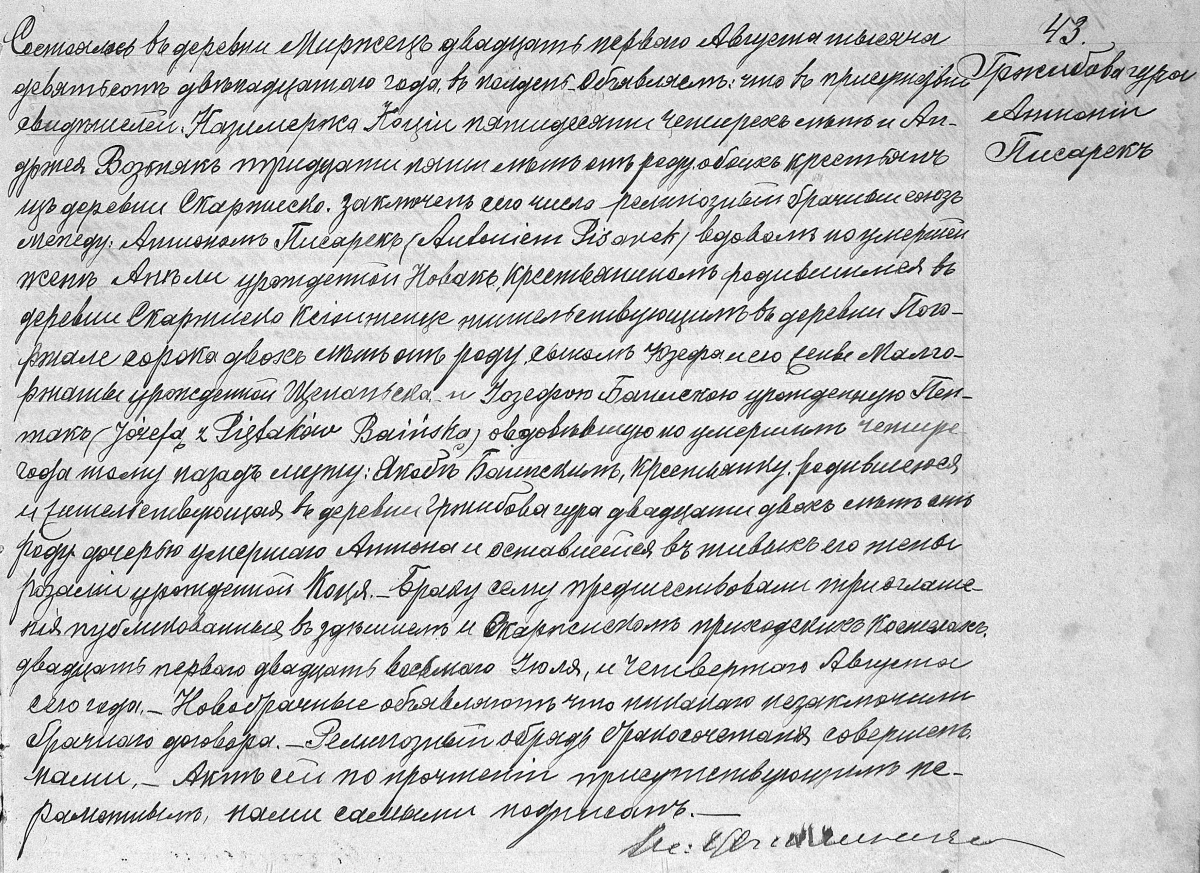 43.
Гржибова гура
Антоній
Писарекъ
Состоялось въ деревни Миржецъ двадцать перваго Августа тысяча
девятьсотъ двѣнадцатаго года, въ полдень. Объявляемъ: что въ присутствіи
свидѣтелей, Казимержа Коціи пятидесяти четырехъ лѣтъ и Ан-
држея Возьнякъ тридцати пяти лѣтъ отъ роду, обоихъ крестьянъ
изъ деревни Скаржиско. заключенъ сего числа религіозный брачный союзъ
между: Антономъ Писарекъ, (Antoniem Pisarek) вдовомъ по умершей
женѣ Анѣли урожденной Новакъ, крестьяниномъ родившимся въ
деревни Скаржиско Ксіонженце жительствующимъ въ деревни Пого-
ржале сорока двохъ лѣтъ отъ роду, сыномъ Юзефа и его жены Малго-
ржаты урожденной Щепаньска и Іозефою Баинскою урожденную Пен-
такъ (Józefą z Piętaków Baińską) овдовѣвшую по умершимъ четыре
года тому назадъ мужу: Якобѣ Баинскимъ, крестьянку, родившеюся
и жительствующая въ деревни Гржибова гура двадцати двохъ лѣтъ отъ
роду дочерью умершаго Антона и оставшейся въ живыхъ его жены
Розаліи урожденной Коця. — Браку сему предшествовали три оглаше-
нія публикованныя въ здѣшнемъ и Скаржискомъ приходскихъ Костелахъ,
двадцать перваго двадцать восьмаго Іюля, и четвертаго Августа
сего года. — Новобрачные объявляютъ что никакаго незаключили
брачнаго договора. — Религіозный обрядъ бракосочетанія совершенъ
нами. — Актъ сей по прочтеніи присутствующимъ не-
грамотнымъ, нами самыми подписанъ. —